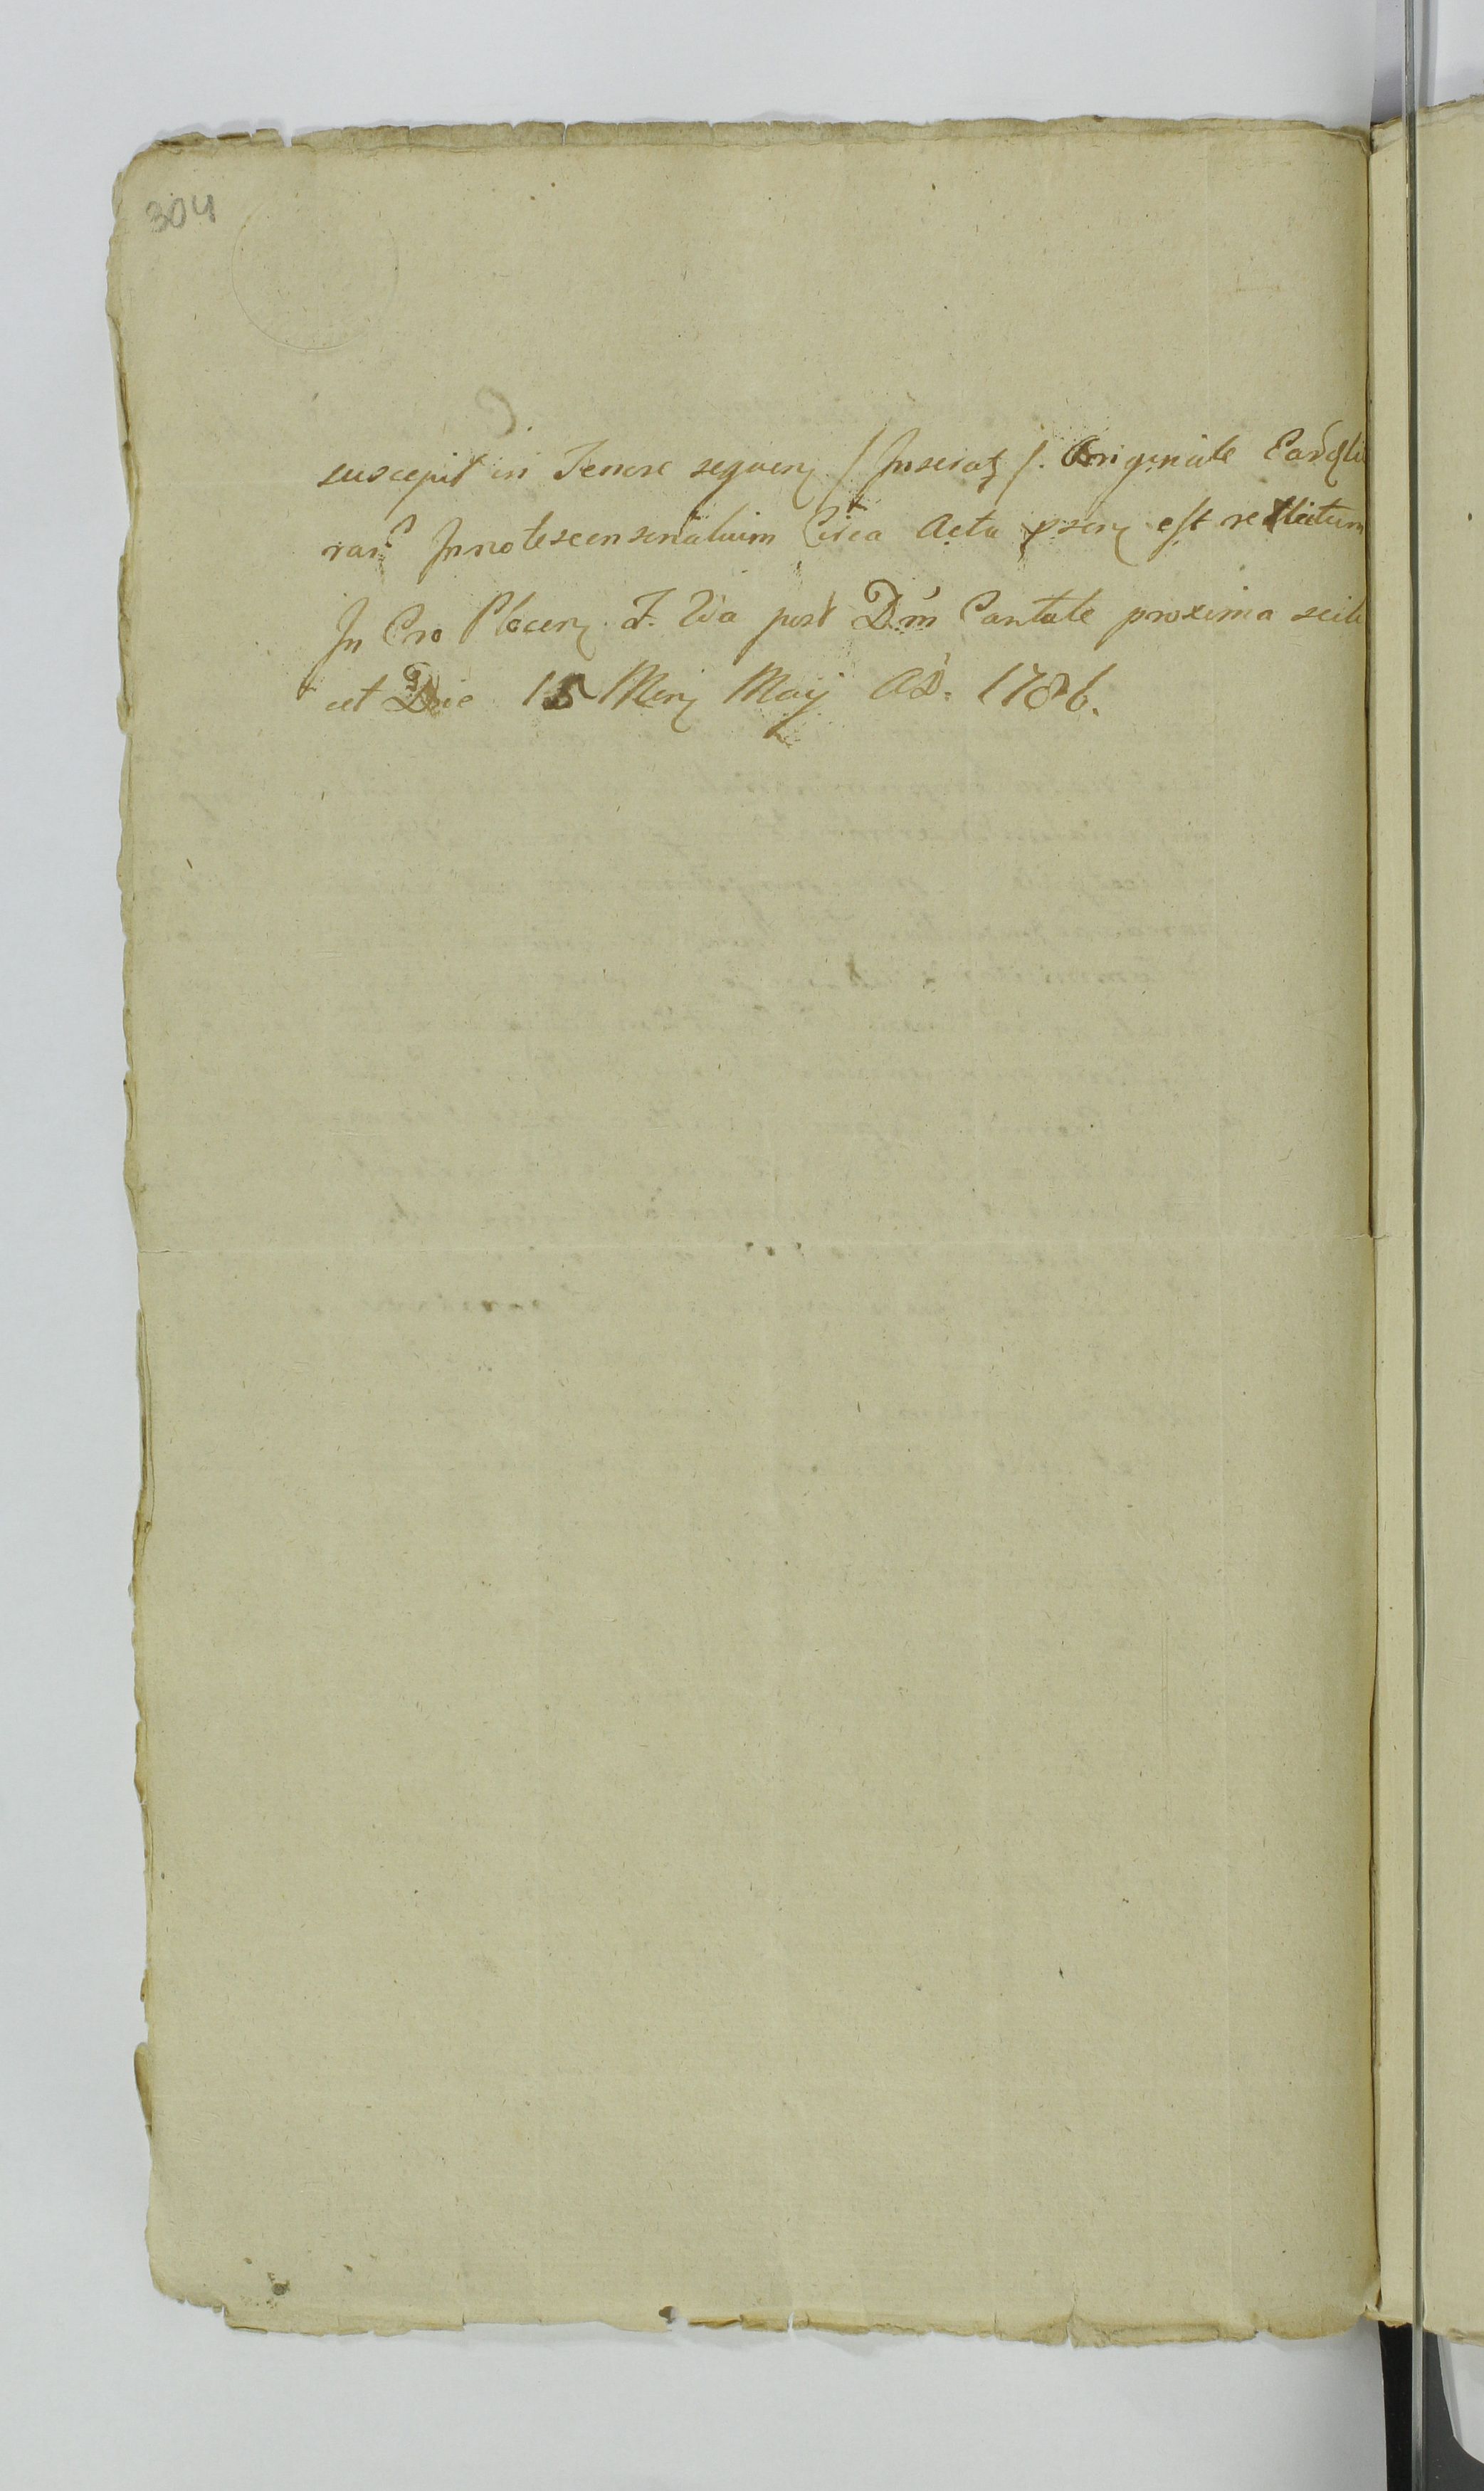 304
suscepit in Tenore sequenȝ / Inseratȝ /. Originale Eaȓdꝗli
rar. Innotescensenaliuim Circa Acta psenȝ est relictum
In Cro Plocenȝ. F. IIda post Dm̄ Cantate proxima scili
cet Die 15 Menȝ Maij AD. 1786.